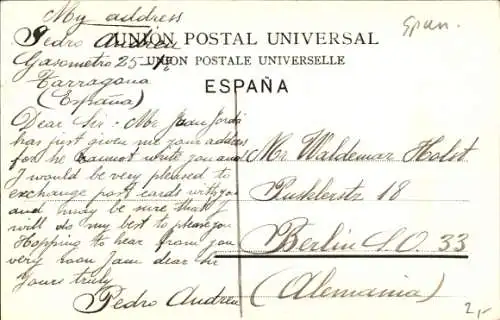 My address
Pedro Andreu
Gasometro 25-1º
Tarragona
(España)
Span.
UNIÓN POSTAL UNIVERSAL
UNION POSTALE UNIVERSELLE
ESPAÑA
Dear Sir - Mr Juan Jordá
has just given me your address
for he cannot write you and
I would be very pleased to
exchange post cards with you
and may be sure that I
will do my best to please you
Hopping to hear from you
very soon I am dear Sir
Yours truly
Pedro Andreu
Mr Waldemar Holst
Pücklerstr 18
Berlin S.O. 33
(Alemania)
2,-